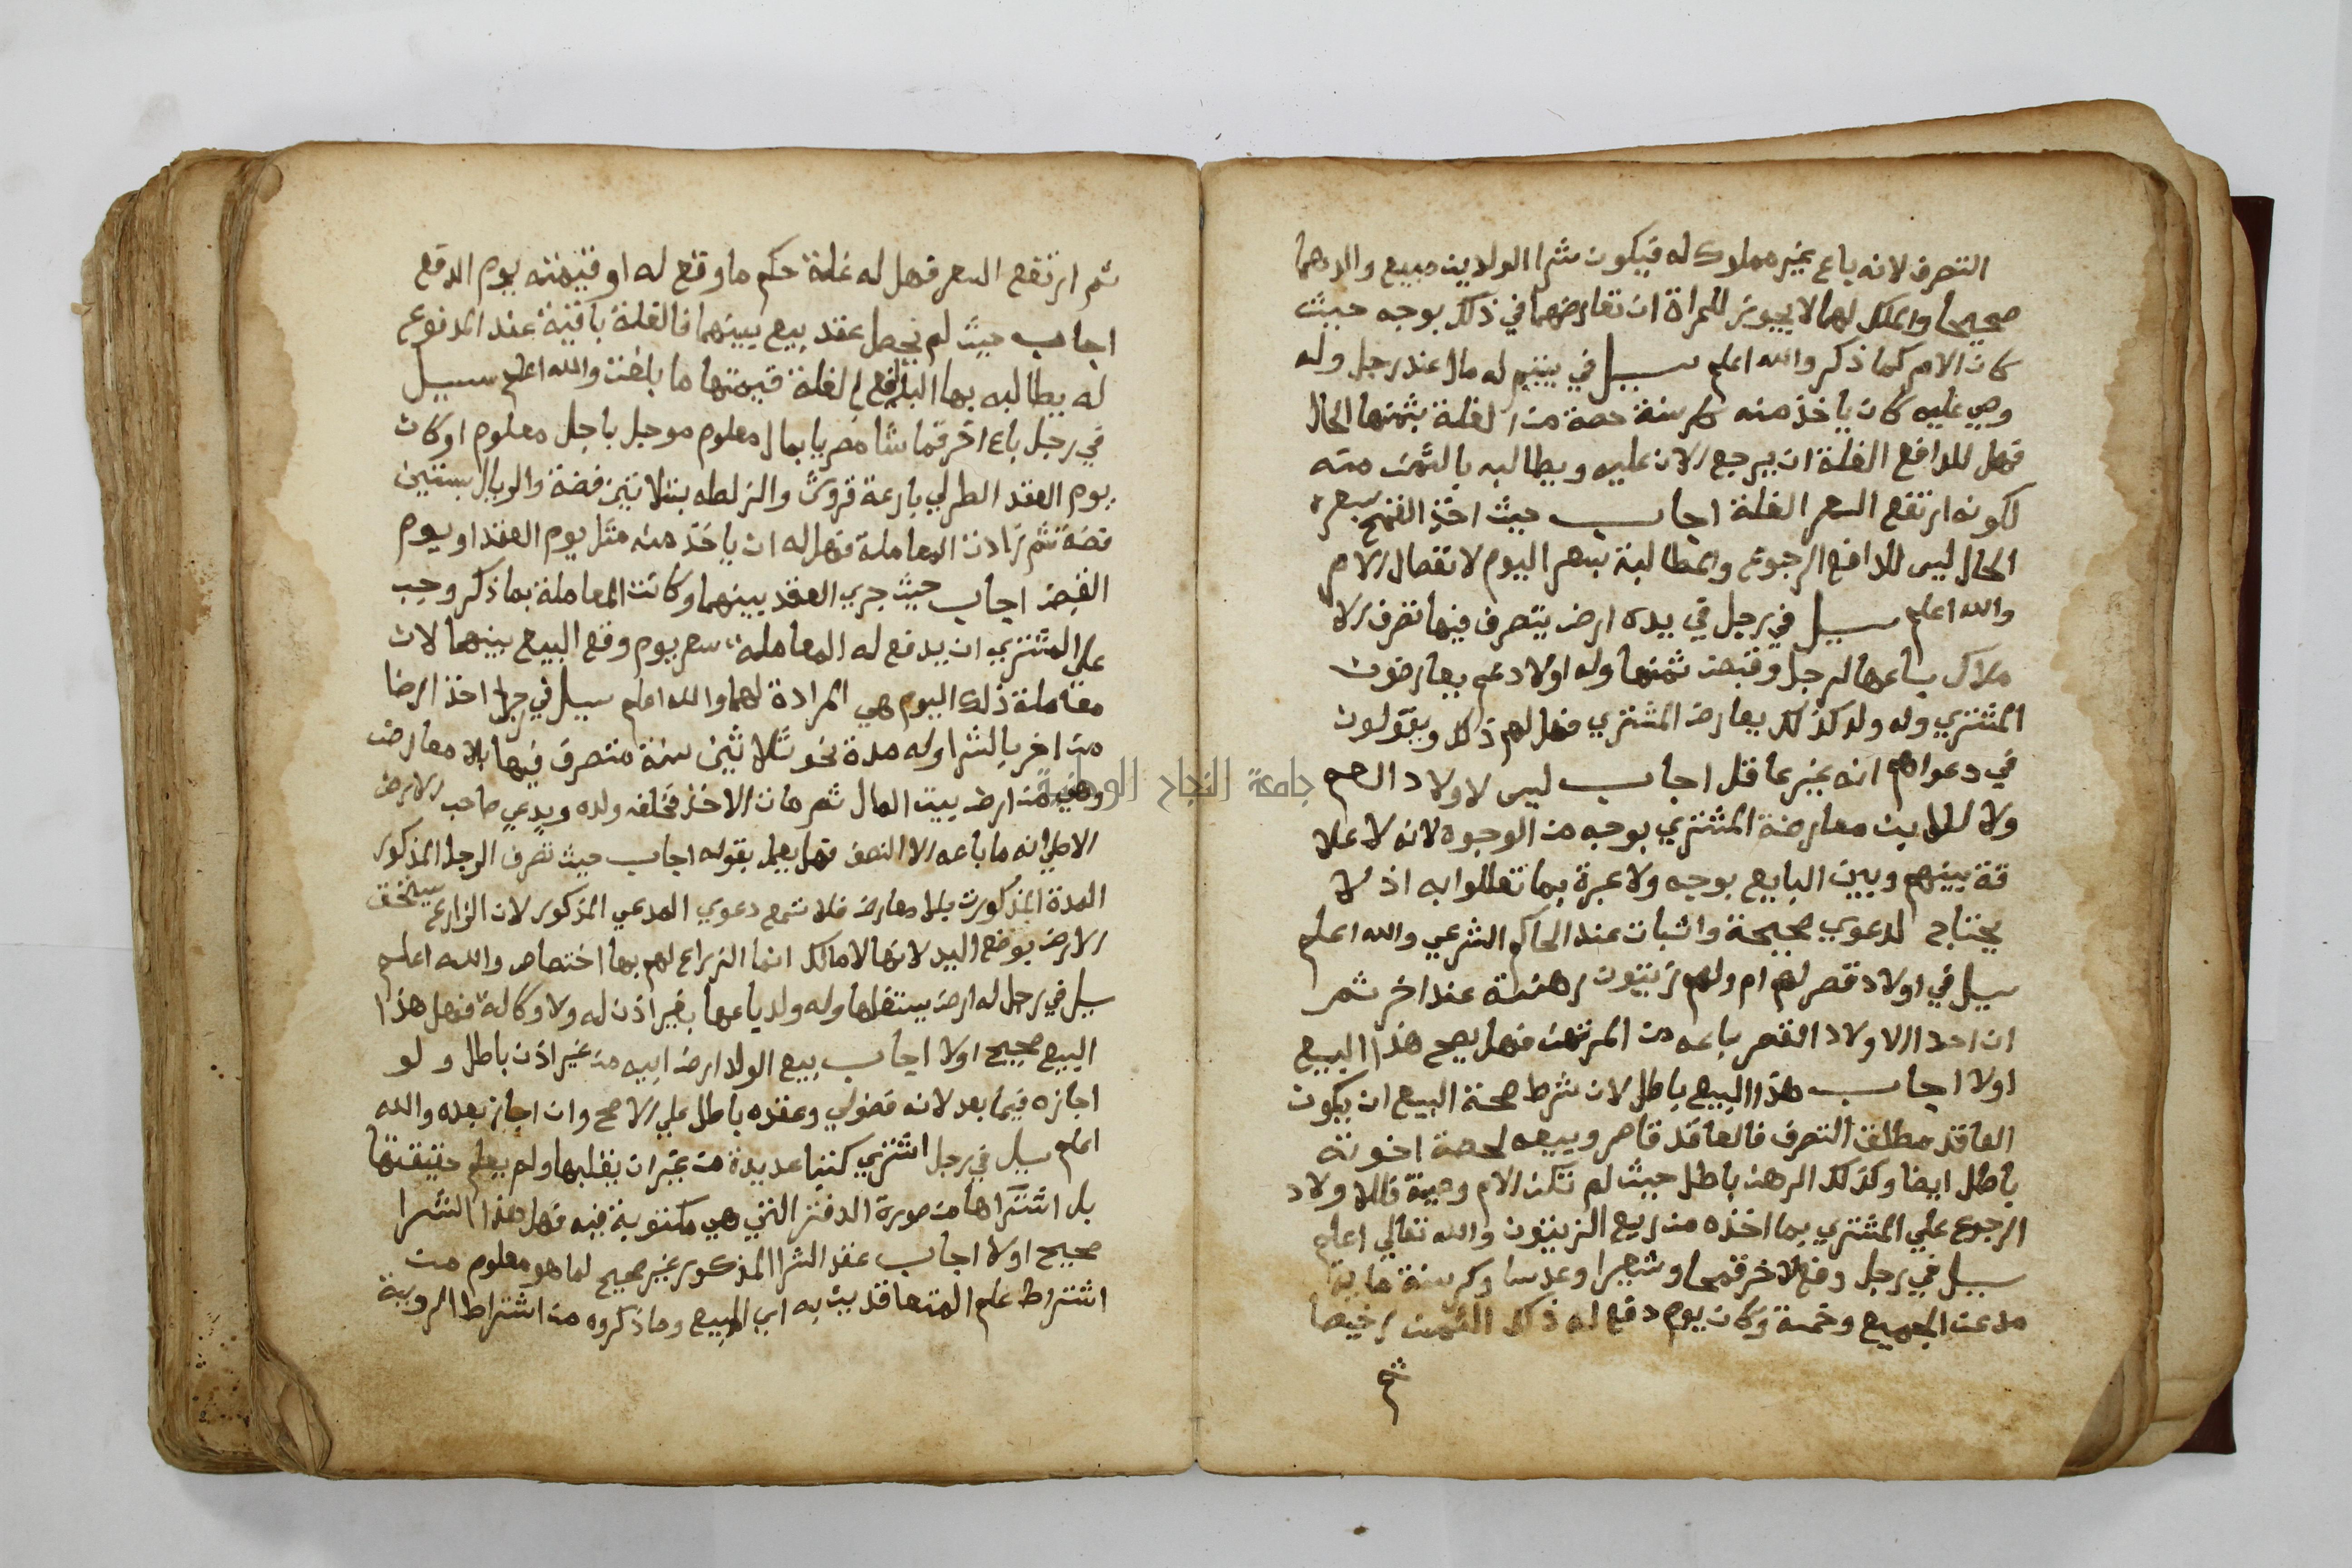 التصرف لانه باع غير مملوك له فيكون شرا الولدين مبيع والدهما
صحيحا والملك لهما لا يجوز للمراة ان تعارضهما في ذلك بوجه حيث
كان الامر كما ذكر والله اعلم سيل في يتيم له مال عند رجل وله
وصي عليه كان ياخذ منه كل سنة حصة من الغلة بثمنها الحال
فهل للدافع الغلة ان يرجع الان عليه ويطالبه بالثمن منه
لكونه ارتفع السعر الغلة اجاب حيث اخذ القمح بسعره
الحال ليس للدافع الرجوع والمطالبة بسعر اليوم لانفصال الامر
والله اعلم سيل في رجل في يده ارض يتصرف فيها تصرف الا
ملاك باعها لرجل وقبض ثمنها وله اولاد عم يعارضون
المشتري وله ولد كذلك يعارض المشتري فهل لهم ذلك ويقولون
في دعواهم انه غير عاقل اجاب ليس لاولاد العم
ولا للابن معارضة المشتري بوجه من الوجوه لانه لا علا
قة بينهم وبين البايع بوجه ولا عبرة بما تعللوا به اذ لا
يحتاج لدعوي صحيحة واثبات عند الحاكم الشرعي والله اعلم
سيل في اولاد قصر لهم ام ولهم زيتون رهنته عند اخر ثم
ان احد الاولاد القصر باعه من المرتهن فهل يصح هذا البيع
اولا اجاب هذا البيع باطل لان شرط صحة البيع ان يكون
العاقد مطلق التصرف فالعاقد قاصر وبيعه لحصة اخوته
باطل ايضا وكذلك الرهن باطل حيث لم تكن الام وصية فللاولاد
الرجوع علي المشتري بما اخذه من ريع الزيتون والله تعالي اعلم
سيل في رجل دفع لاخر قمحا وشعيرا وعدسا وكرسنة ماية
مد عن الجميع وخمسة وكان يوم دفع له ذلك الثمن رخيصا
ثم
ثم ارتفع السعر فهل له غلة حكم ما وقع له او قيمته يوم الدفع
اجاب حيث لم يحصل عقد بيع بينهما فالغلة باقية عند المدفوع
له يطالبه بها الدافع الغلة قيمتها ما بلغت والله اعلم سيل
في رجل باع اخر قماشا مصريا بمال معلوم موجل باجل معلوم اوكان
يوم العقد الطرلي باربعة قروش والزلطه بثلاثين فضة والريال بستين
فضة ثم زادت المعاملة فهل له ان ياخذ منه مثل يوم العقد او يوم
القبض اجاب حيث جري العقد بينهما وكانت المعاملة بما ذكر وجب
علي المشتري ان يدفع له المعاملة سعر يوم وقع البيع بينهما لان
معاملة ذلك اليوم هي المرادة لهما والله اعلم سيل في رجل اخذ ارضا
من اخر بالشرا وله مدة نحو ثلاثين سنة متصرف فيها بلا معارض
وهي من ارض بيت المال ثم مات الاخذ فخلفه ولده ويدعي صاحب الارض
الاصلي انه ما باعه الا النصف فهل يعمل بقوله اجاب حيث تصرف الرجل المذكور
المدة المذكورة بلا معارض فلا تسمع دعوي المدعي المذكور لان الزارع يستحق
الارض بوضع اليد لانها لا مالك انما الزراع لهم بها اختصاص والله اعلم
سيل في رجل له ارض يستغلها وله ولد باعها بغير اذن له ولا وكالة فهل هذا
البيع صحيح اولا اجاب بيع الولد ارض ابيه من غير اذن باطل ولو
اجازه فيما بعد لانه فضولي وعقده باطل علي الاصح وان اجاز بعده والله
اعلم سيل في رجل اشتري كتبا عديدة من غير ان يقلبها ولم يعلم حقيقتها
بل اشتراها من صورة الدفتر التي هي مكتوبة فيه فهل هذا الشرا
صحيح اولا اجاب عقد الشرا المذكور غير صحيح لما هو معلوم من
اشتراط علم المتعاقدين به اي المبيع وما ذكروه من اشتراط الروية
جامعة النجاح الوطنية